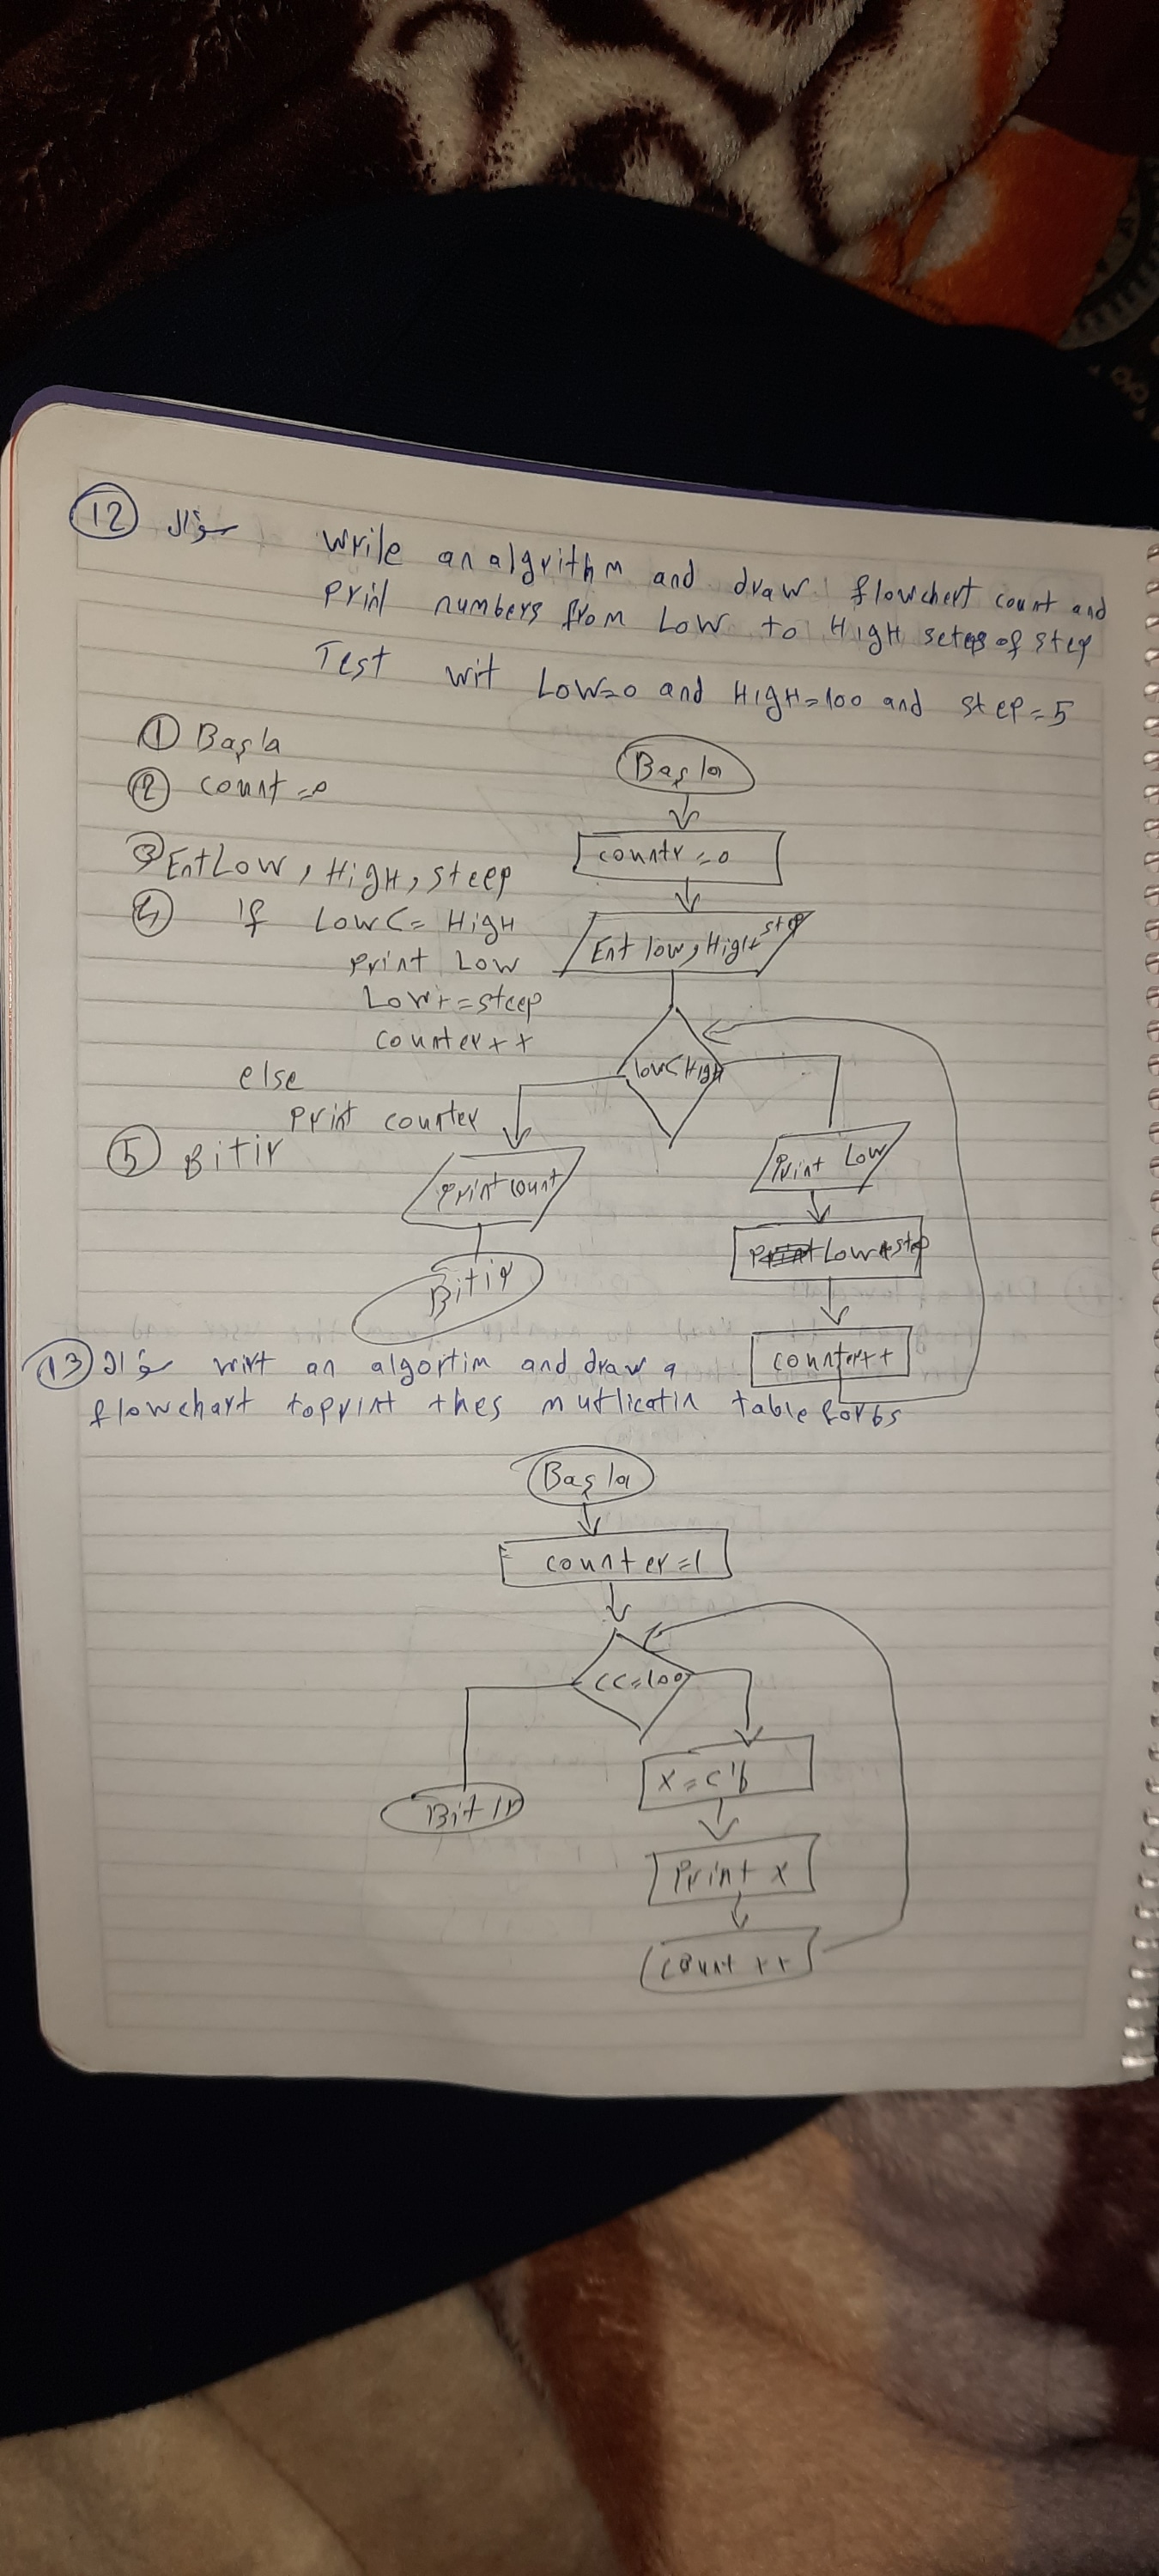 12 سؤال Write an algrithm and draw flowchert count and
print numbers from Low to HIGH setps of step
Test wit Low=0 and HIGH=100 and step=5
① Başla
② count=0
③ Ent Low, HiGH, steep
④ If Low<= HiGH
print Low
Low+=steep
counter++
else
print counter
⑤ Bitir
Başla
countr=0
Ent low, High step
low<High
print count
Bitir
Print Low
Low+step
counter++
13 سؤال wirt an algortim and draw a
flowchart toprint thes mutlicatin table for 6s
Başla
counter=1
C<=100
Bitir
x=c*6
Print x
count ++